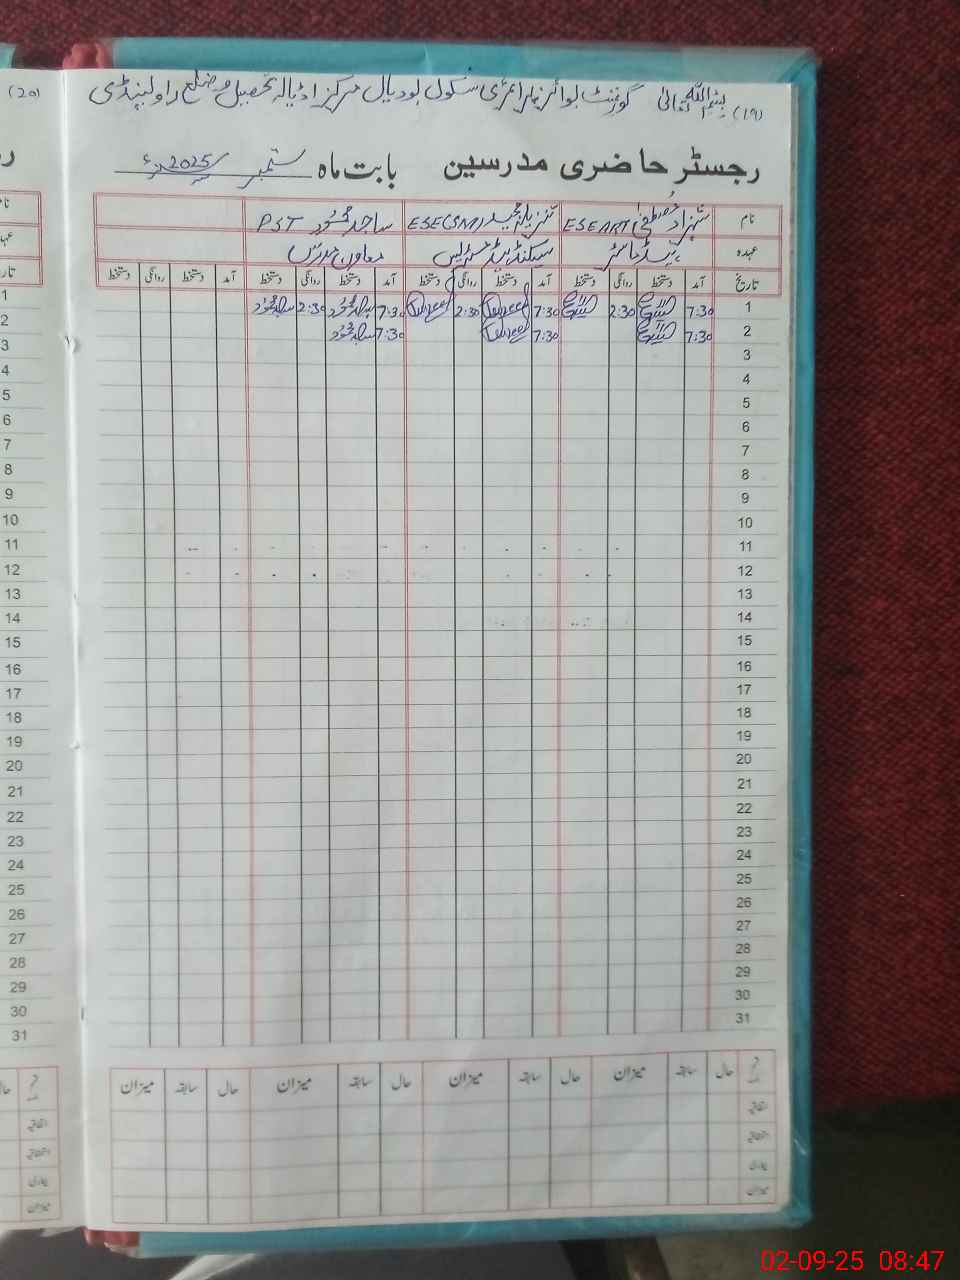 (19) بسم اللہ تعالیٰ گورنمنٹ بوائز پرائمری سکول بودیال مرکز اڈیالہ تحصیل و ضلع راولپنڈی
(20)
رجسٹر حاضری مدرسین بابت ماہ ستمبر 2025ء
نام شہزاد مصطفیٰ ESEARTS تنزیلہ مجید ESE(SM) ساجد محمود PST
عہدہ ہیڈ ماسٹر سیکنڈ ہیڈ مسٹریس معاون مدرس
تاریخ آمد دستخط روانگی دستخط آمد دستخط روانگی دستخط آمد دستخط روانگی دستخط آمد دستخط روانگی دستخط
1 7:30 2:30 7:30 2:30 7:30 ساجد محمود 2:30 ساجد محمود 1
2 7:30 7:30 7:30 ساجد محمود 2
3 3
4 4
5 5
6 6
7 7
8 8
9 9
10 10
11 11
12 12
13 13
14 14
15 15
16 16
17 17
18 18
19 19
20 20
21 21
22 22
23 23
24 24
25 25
26 26
27 27
28 28
29 29
30 30
31 31
حال سابقہ میزان حال سابقہ میزان حال سابقہ میزان حال سابقہ میزان
اتفاقیہ
بیماری
میزان
02-09-25 08:47